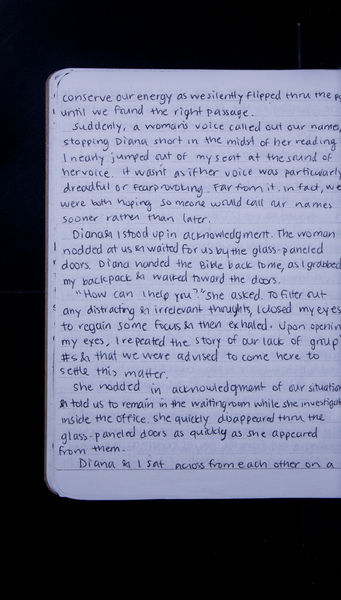 conserve our energy as we silently flipped thru the
until we found the right passage.
Suddenly, a woman's voice called out our name,
stopping Diana short in the midst of her reading.
I nearly jumped out of my seat at the sound of
her voice. It wasn't as if her voice was particularly
dreadful or fearprovoking. Far from it. In fact, we
were both hoping someone would call our names
sooner rather than later.
Diana & I stood up in acknowledgment. The woman
nodded at us & waited for us by the glass-paneled
doors. Diana handed the Bible back to me, as I grabbed
my backpack & walked toward the doors.
"How can I help you?" she asked. To filter out
any distracting & irrelevant thoughts, I closed my eyes
to regain some focus & then exhaled. Upon openin
my eyes, I repeated the story of our lack of group
#s & that we were advised to come here to
settle this matter.
She nodded in acknowledgment of our situation
& told us to remain in the waiting room while she investigat
inside the office. She quickly disappeared thru the
glass-paneled doors as quickly as she appeared
from them.
Diana & I sat across from each other on a